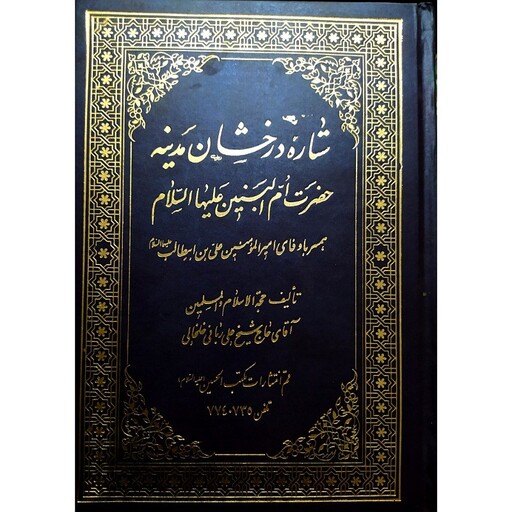 ستاره درخشان مدینه
حضرت ام البنین علیها السلام
همسر باوفای امیرالمؤمنین علی بن ابیطالب علیهما السلام
تألیف حجة الاسلام والمسلمین
آقای حاج شیخ علی ربانی خلخالی
قم انتشارات مکتب الحسین (علیه السلام)
تلفن ۷۷۴۰۷۳۵